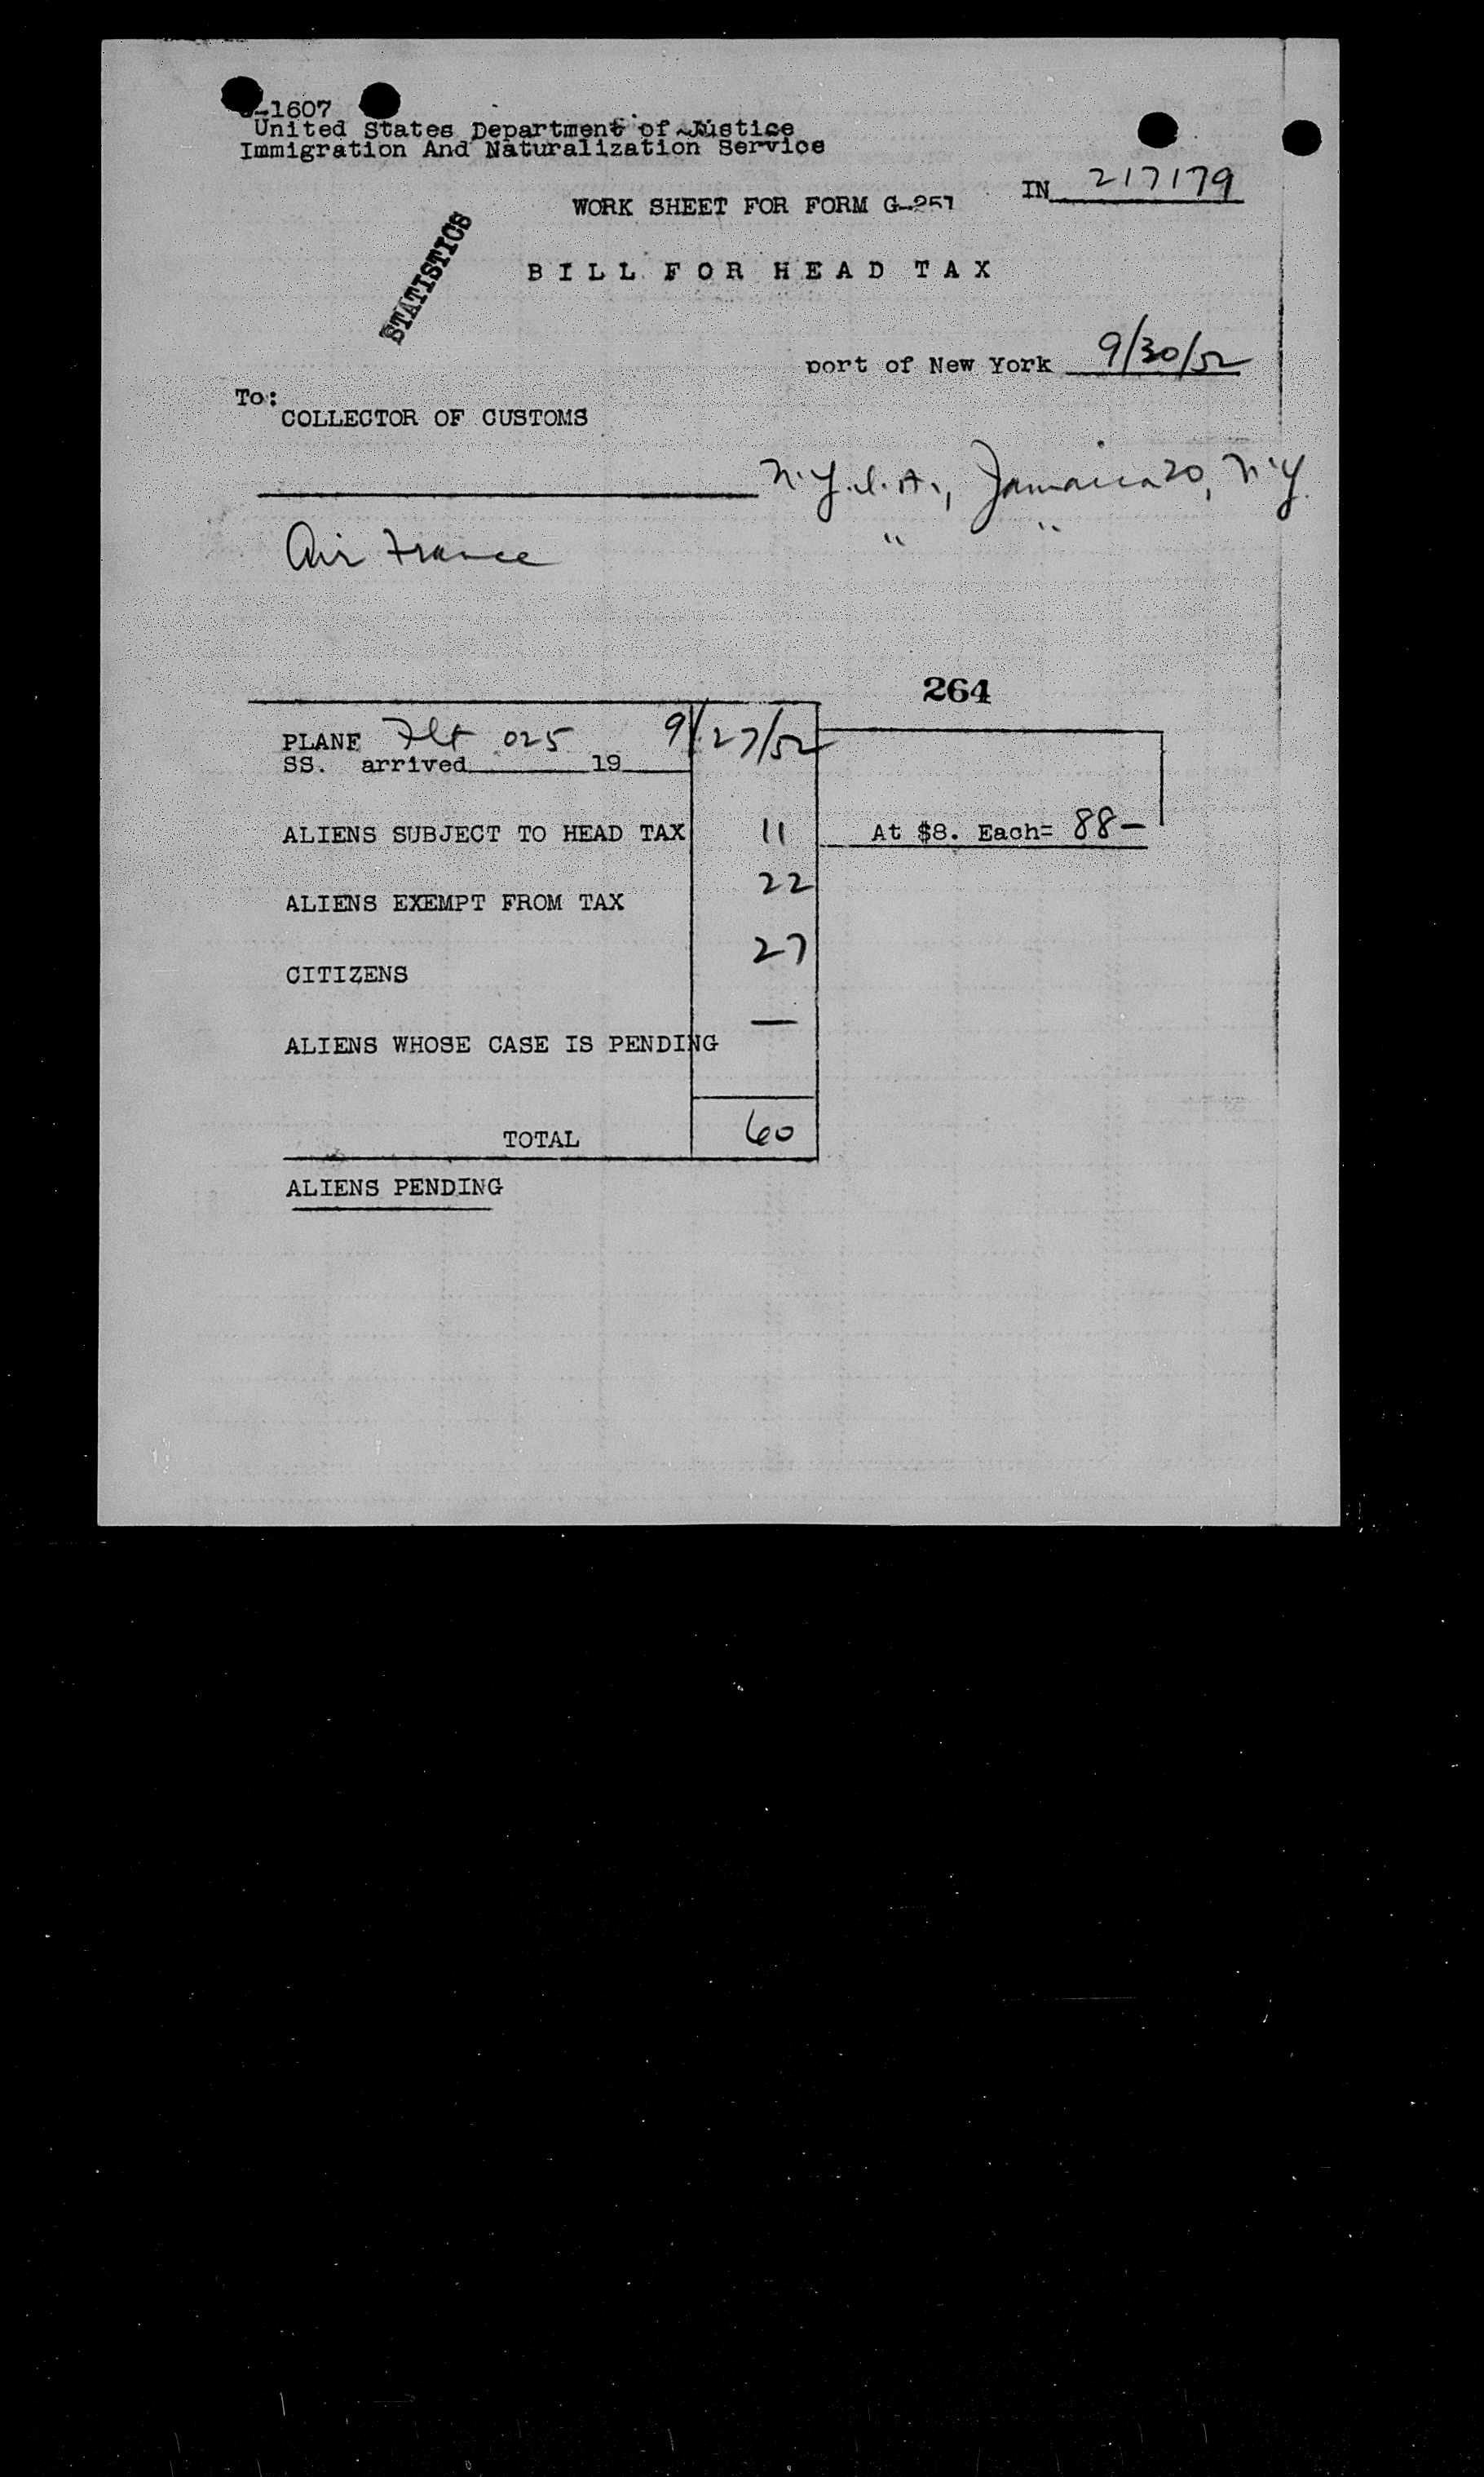 -1607
United States Department of Justice
Immigration And Naturalization Service
IN 217179
WORK SHEET FOR FORM G-251
STATISTICS
BILL FOR HEAD TAX
port of New York 9/30/52
To:
COLLECTOR OF CUSTOMS
N.Y.I.A., Jamaica 20, N.Y.
Air France " "
264
PLANE Flt 025 9/27/52
SS. arrived 19
ALIENS SUBJECT TO HEAD TAX 11 At $8. Each= 88-
ALIENS EXEMPT FROM TAX 22
CITIZENS 27
ALIENS WHOSE CASE IS PENDING —
TOTAL 60
ALIENS PENDING